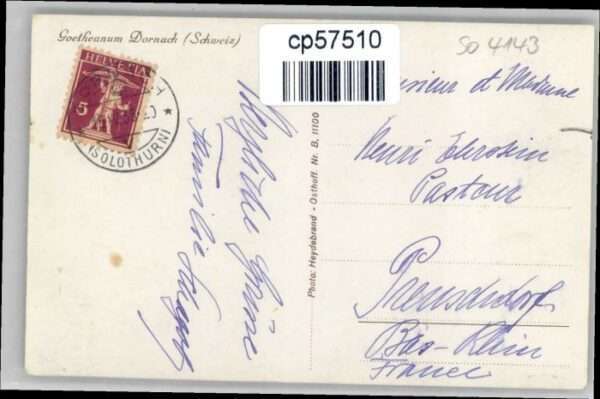 Goetheanum Dornach (Schweiz)
cp57510
SO 4143
HELVETIA
5
(SOLOTHURN)
Monsieur et Madame
Henri
Pasteur
Preuschdorf
Bas-Rhin
France
Herzliche Grüsse
Familie
Photo: Heydebrand - Osthoff. Nr. B. 11100